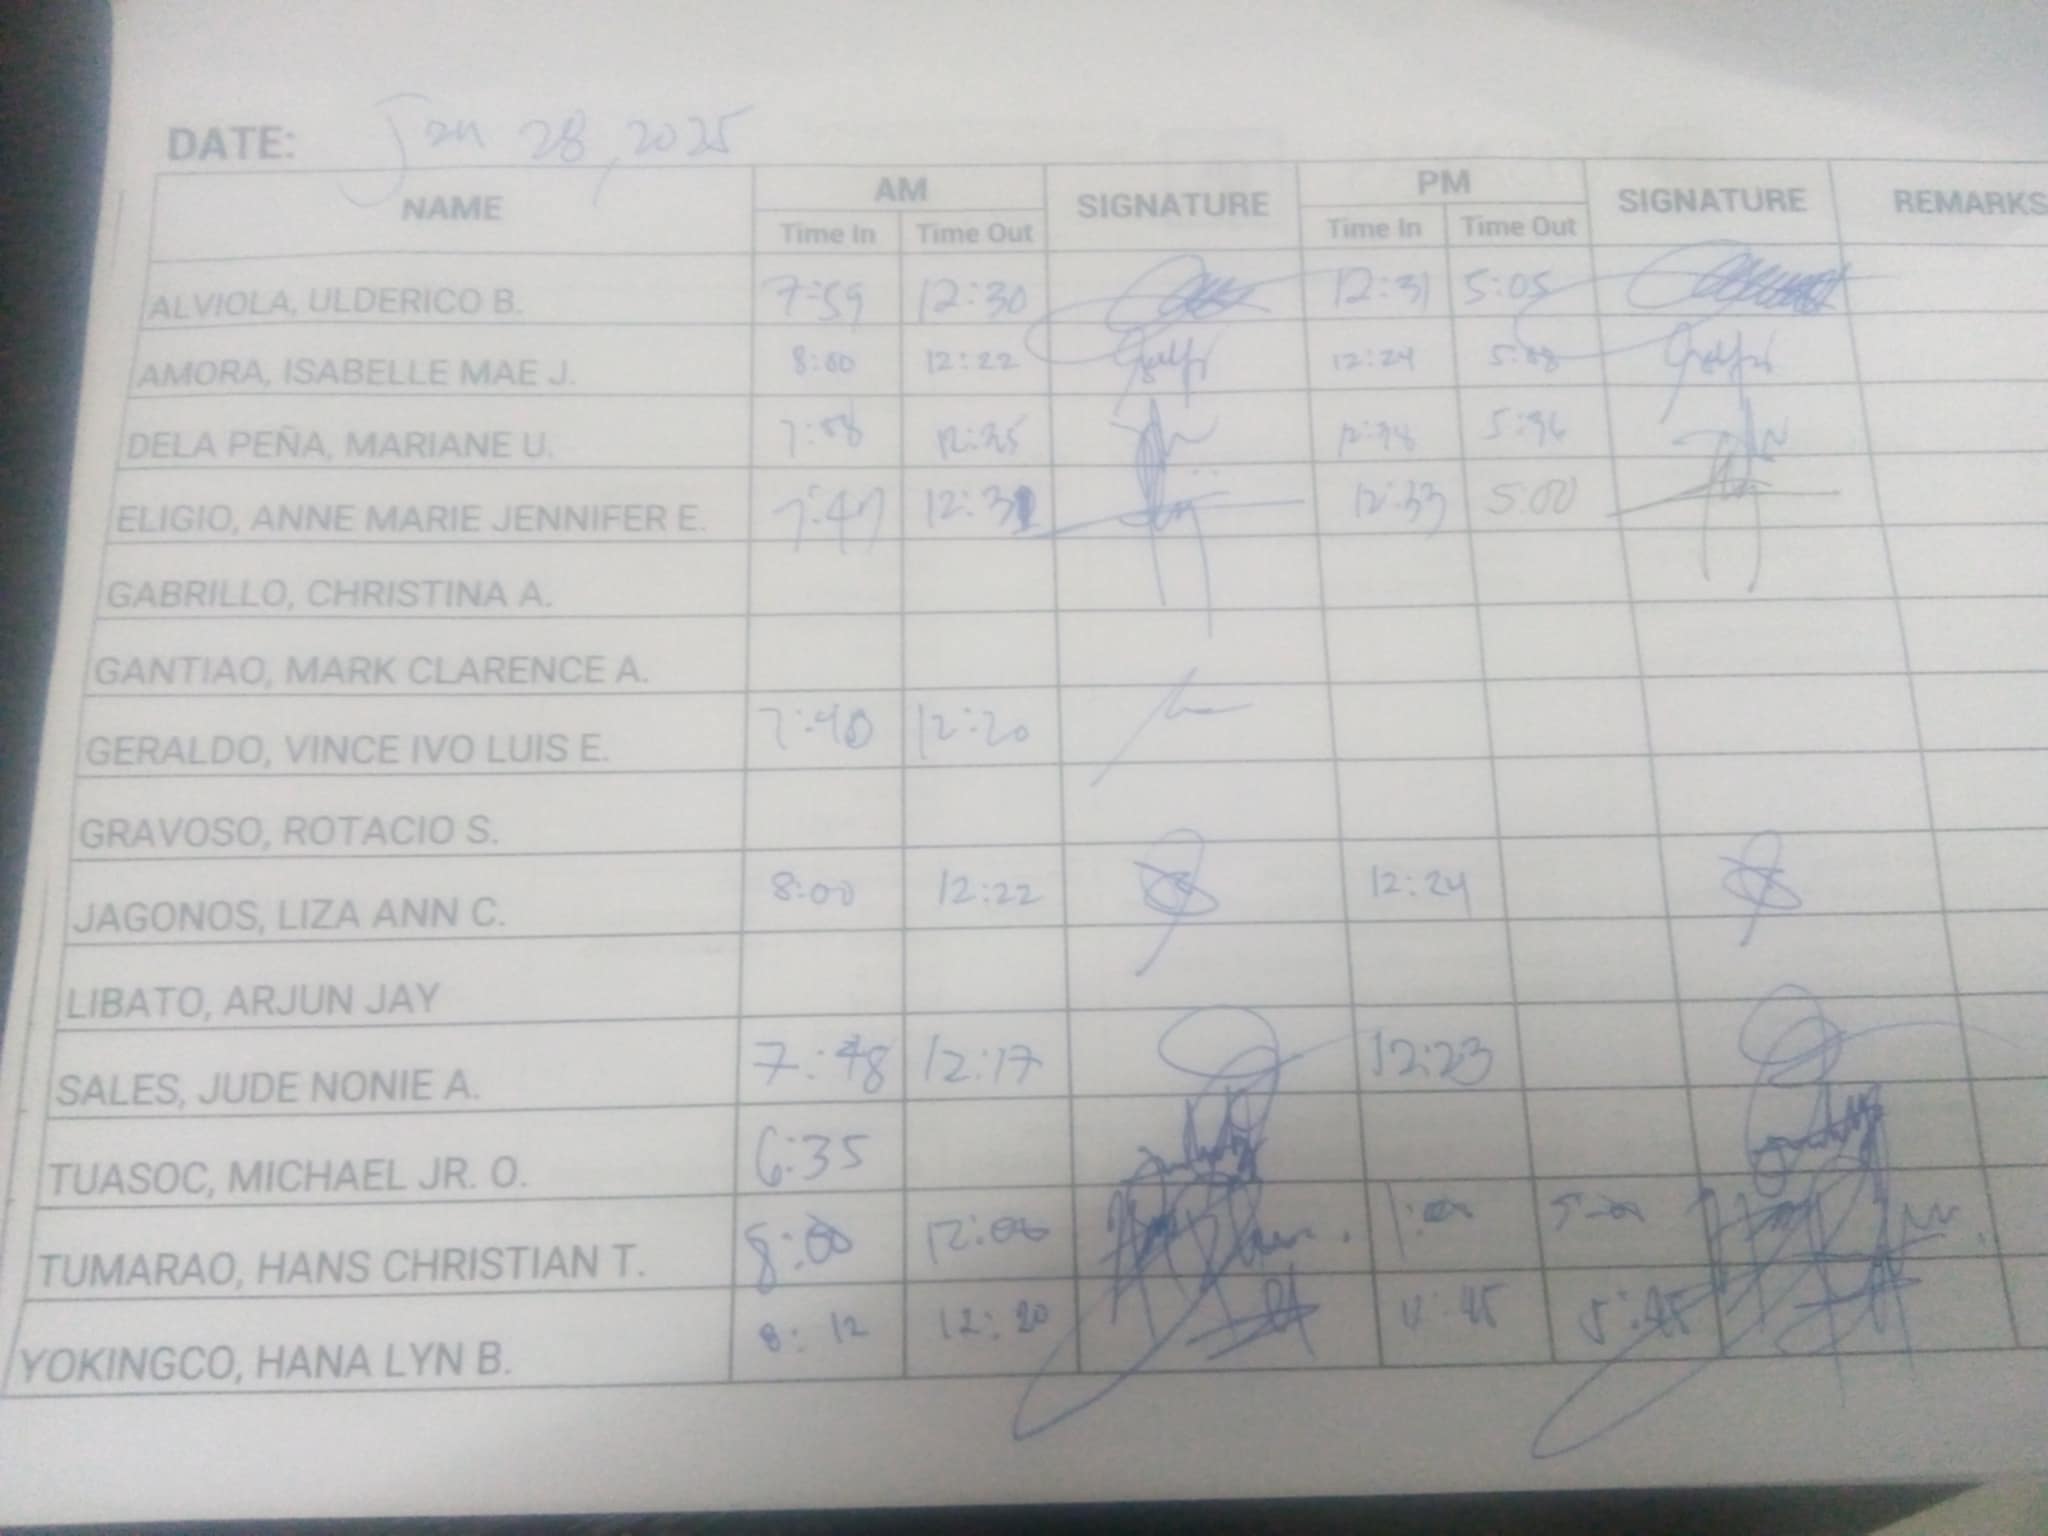 DATE: Jan 28, 2025
NAME AM SIGNATURE PM SIGNATURE REMARKS
Time In Time Out Time In Time Out
ALVIOLA, ULDERICO B. 7:59 12:30 12:31 5:05
AMORA, ISABELLE MAE J. 8:00 12:22 12:24 5:08
DELA PEÑA, MARIANE U. 12:35
ELIGIO, ANNE MARIE JENNIFER E. 7:47 12:31 12:33 5:00
GABRILLO, CHRISTINA A.
GANTIAO, MARK CLARENCE A.
GERALDO, VINCE IVO LUIS E. 7:40 12:20
GRAVOSO, ROTACIO S.
JAGONOS, LIZA ANN C. 8:00 12:22 12:24
LIBATO, ARJUN JAY
SALES, JUDE NONIE A. 7:48 12:17 12:23
TUASOC, MICHAEL JR. O. 6:35
TUMARAO, HANS CHRISTIAN T. 8:00 12:00 1:00 5:00
YOKINGCO, HANA LYN B. 8:12 12:20 5:45